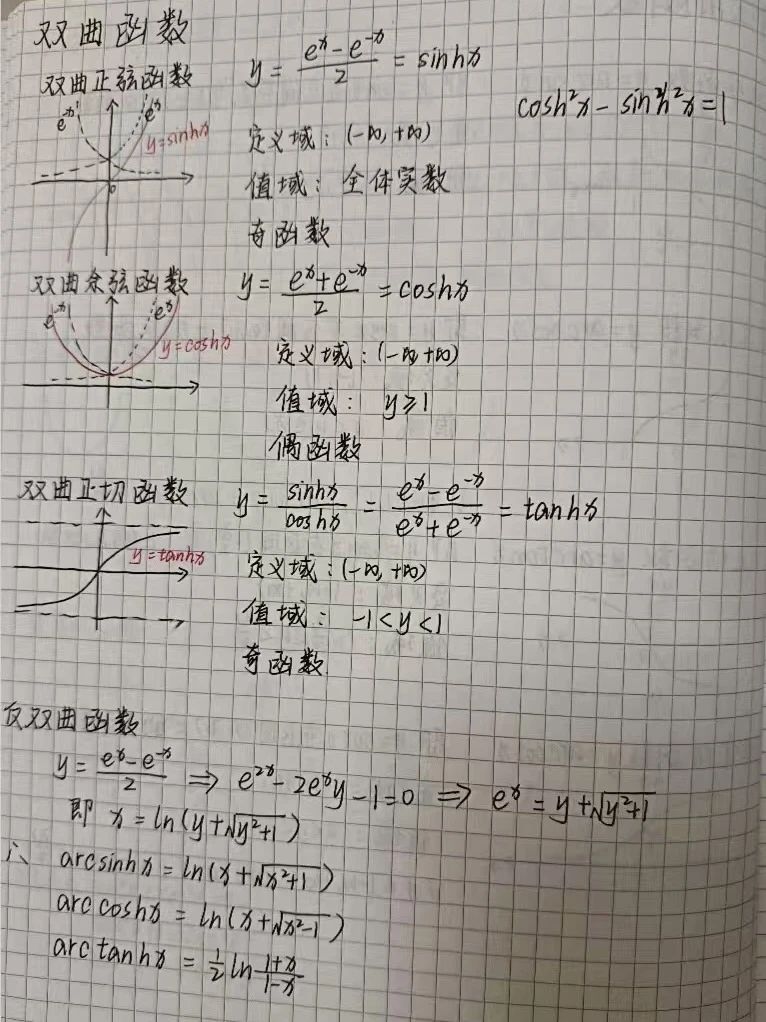 双曲函数
双曲正弦函数
y = (eˣ − e⁻ˣ)/2 = sinhx
cosh²x − sinh²x = 1
e⁻ˣ
eˣ
y=sinhx
0
定义域：(−∞, +∞)
值域：全体实数
奇函数
双曲余弦函数
y = (eˣ + e⁻ˣ)/2 = coshx
e⁻ˣ
eˣ
y=coshx
定义域：(−∞, +∞)
值域：y≥1
偶函数
双曲正切函数
y = sinhx/coshx = (eˣ − e⁻ˣ)/(eˣ + e⁻ˣ) = tanhx
y=tanhx
定义域：(−∞, +∞)
值域：−1<y<1
奇函数
反双曲函数
y = (eˣ − e⁻ˣ)/2 ⇒ e²ˣ − 2eˣy − 1 = 0 ⇒ eˣ = y + √(y²+1)
即 x = ln(y + √(y²+1))
∴ arcsinhx = ln(x + √(x²+1))
arccoshx = ln(x + √(x²−1))
arctanhx = ½ ln (1+x)/(1−x)